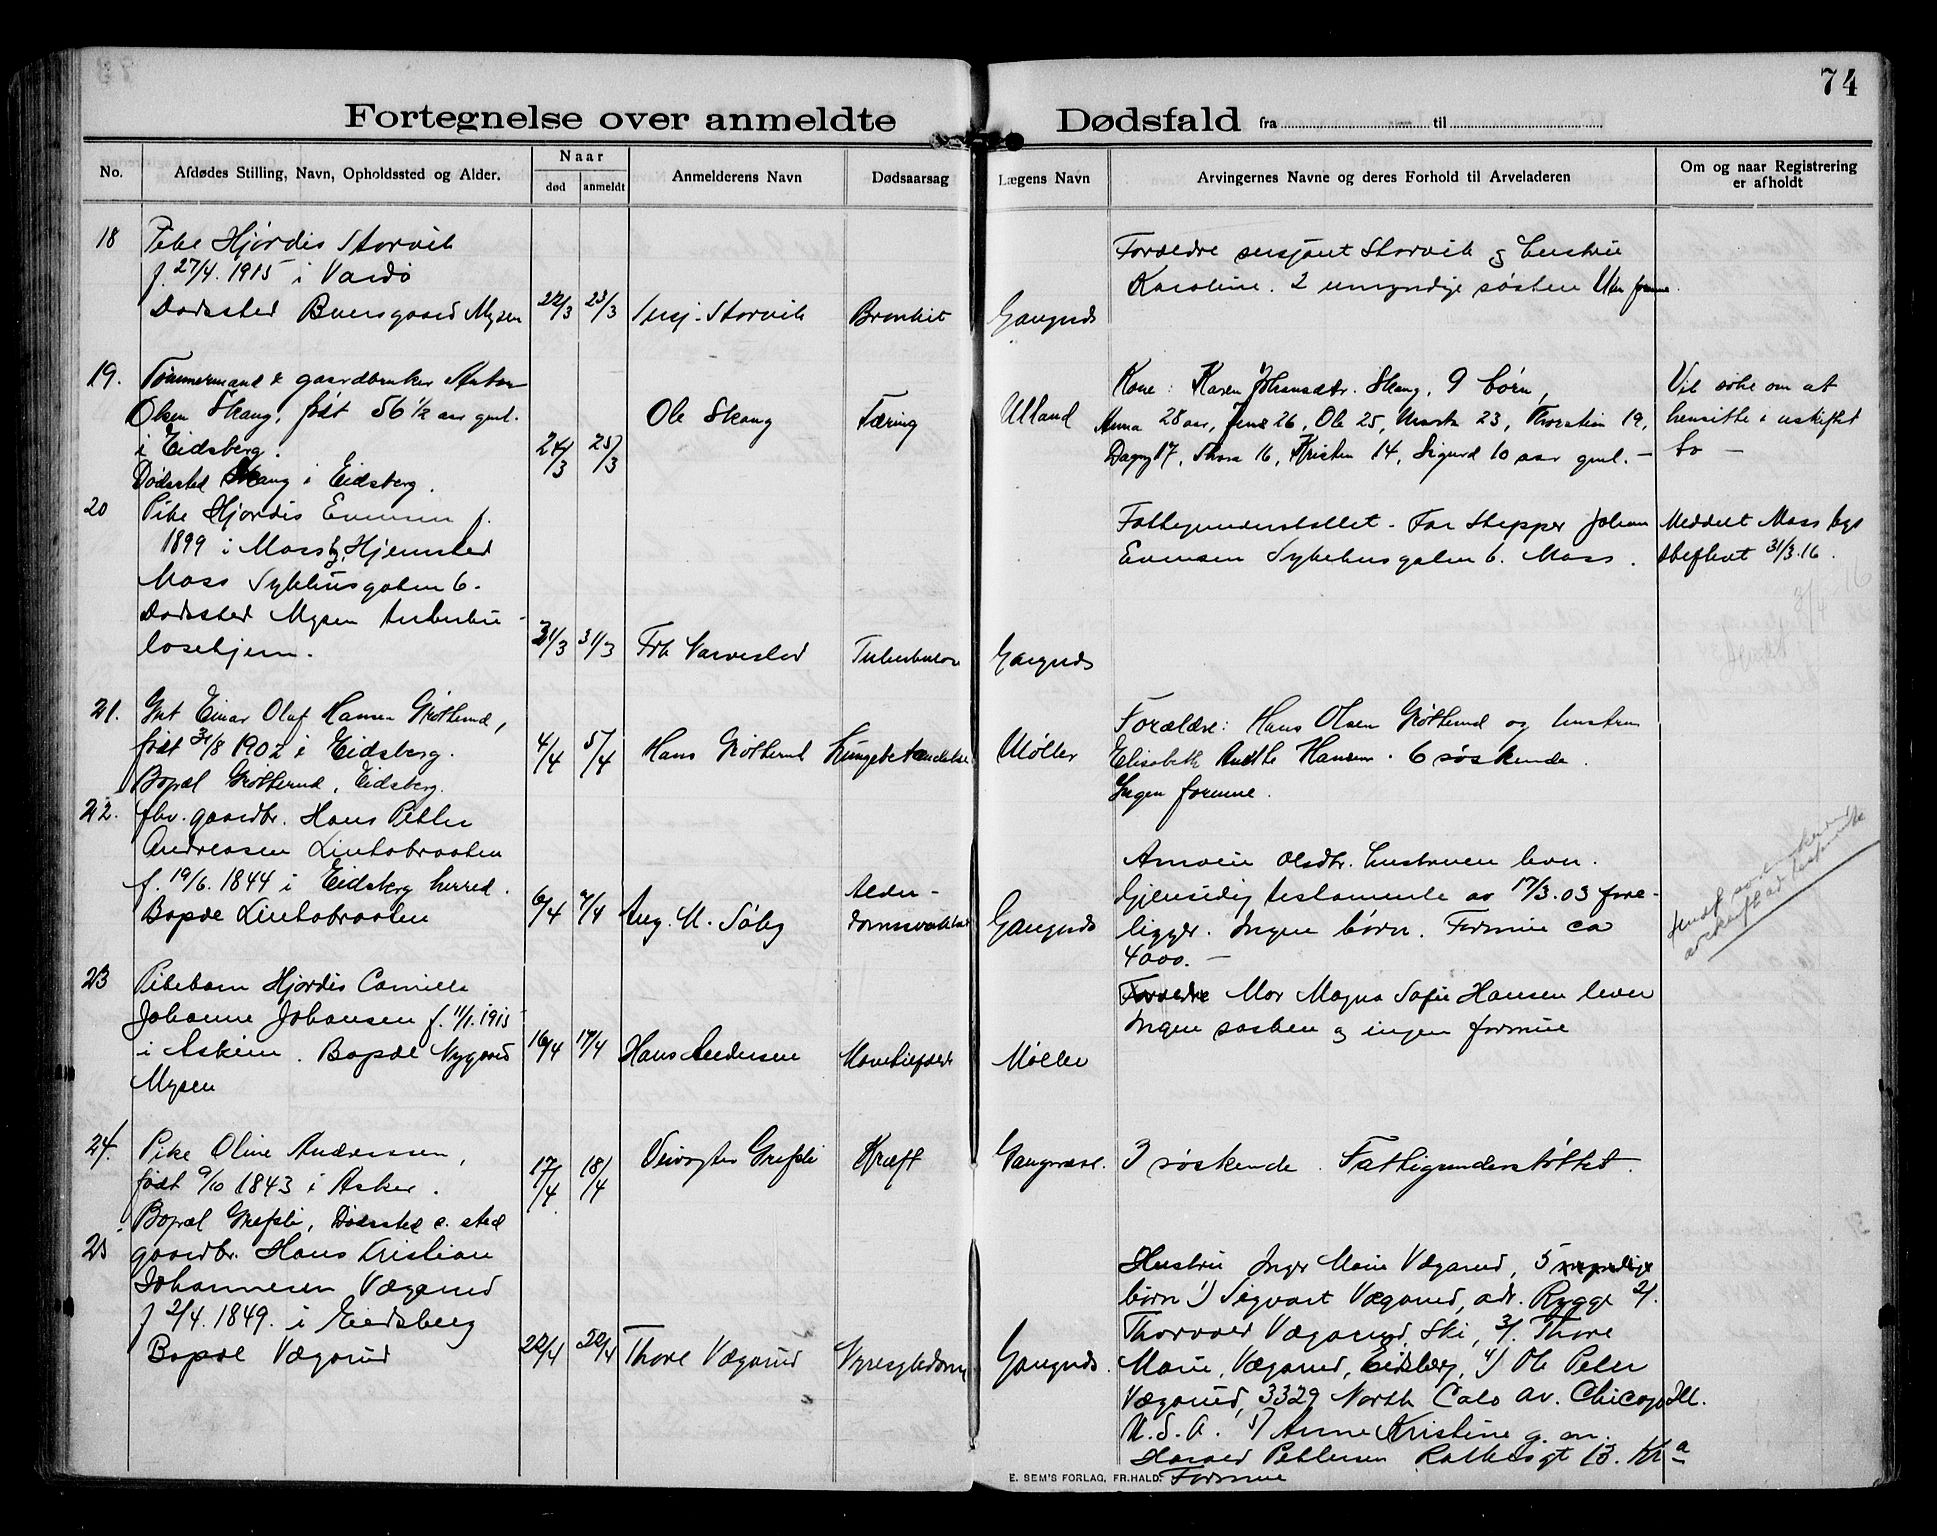 74
Fortegnelse over anmeldte Dødsfald fra til
No.
Afdødes Stilling, Navn, Opholdssted og Alder.
Naar
død
anmeldt
Anmelderens Navn
Dødsaarsag
Lægens Navn
Arvingernes Navne og deres Forhold til Arveladeren
Om og naar Registrering
er afholdt
18
Pike Hjørdis Storvik
f. 27/4. 1915 i Vardø
Dødssted Mysen
22/3
23/3
Sersj. Storvik
Bronkit
Gangnæs
Forældre sersjant Storvik og hustru
Karoline. 2 umyndige søsken Uten formue.
19.
Tømmermand & gaardbruker Anton
Olsen Skaug, født 56 1/2 aar gml.
i Eidsberg.
Dødssted Skaug i Eidsberg.
24/3
25/3
Ole Skaug
Tæring
Ulland
Kone: Karen Johansdtr. Skaug, 9 børn,
Anna 28 aar, Jens 26, Ole 25, Marta 23, 19,
Dagny 17, Thora 16, Kristen 14, Sigurd 10 aar gml. –
Vil søke om at
hensitte i uskiftet
bo –
20
Pike Hjørdis Evensen f.
1899 i Moss by, Hjemsted
Moss Sykehusgaten 6.
Dødssted Mysen tuberku-
losehjem.
31/3
31/3
Frk
Tuberkulose
Gangnæs
Fattigunderstøttet. Far Johan
Evensen Sykehusgaten 6. Moss.
Meddelt Moss
31/3.16.
21.
Gut Einar Olaf Hansen Grøtterud,
født 31/8 1902 i Eidsberg.
Bopæl Grøtterud, Eidsberg.
4/4
5/4
Hans Grøtterud
Lungebetændelse
Møller
Forældre: Hans Olsen Grøtterud og hustru
Elisabeth Hansen. 6 søskende.
Ingen formue.
22.
fhv. gaardbr. Hans Petter
Andreassen Lintobraaten
f. 19/6. 1844 i Eidsberg herred.
Bopæl Lintobraaten
6/4
7/4
Aug. M. Søby
Alder-
domssvakhet
Gangnæs
Olsdtr. hustruen lever.
Gjensidig testamente av 17/3.03 fore-
ligger. Ingen børn. Formue ca
4000. –
23
Pikebarn Hjørdis Camilla
Johanne Johansen f. 11/1.1915
i Askim. Bopæl Nygaard
Mysen
16/4
17/4
Hans Andersen
Møller
Forældre Mor Magna Sofie Hansen lever
Ingen søsken og ingen formue
24.
Pike Oline Andersen,
født 9/10 1843 i Asker.
Bopæl Grefsli, Dødssted s. sted
17/4
18/4
Veivogter Grefsli
Kræft
Gangnæs.
3 søskende. Fattigunderstøttet.
25
gaardbr. Hans Kristian
Johannesen Vægarud
f 2/4. 1849. i Eidsberg
Bopæl Vægarud
22/4
Thore Vægarud
Nyresykdom
Gangnæs.
Hustru Inger Marie Vægarud, 5 myndige
børn 1) Sigvart Vægarud, adr. Rygge 2/.
Thorvald Vægarud, Ski, 3/. Thore
Marie, Vægarud, Eidsberg, 4) Ole Peter
Vægarud, 3329 North Av. Chicago Ill.
U.S.A. 5) Anne Kristine g. m.
Harald Pettersen 13. Kra
Formue
E. SEM'S FORLAG, FR.HALD.